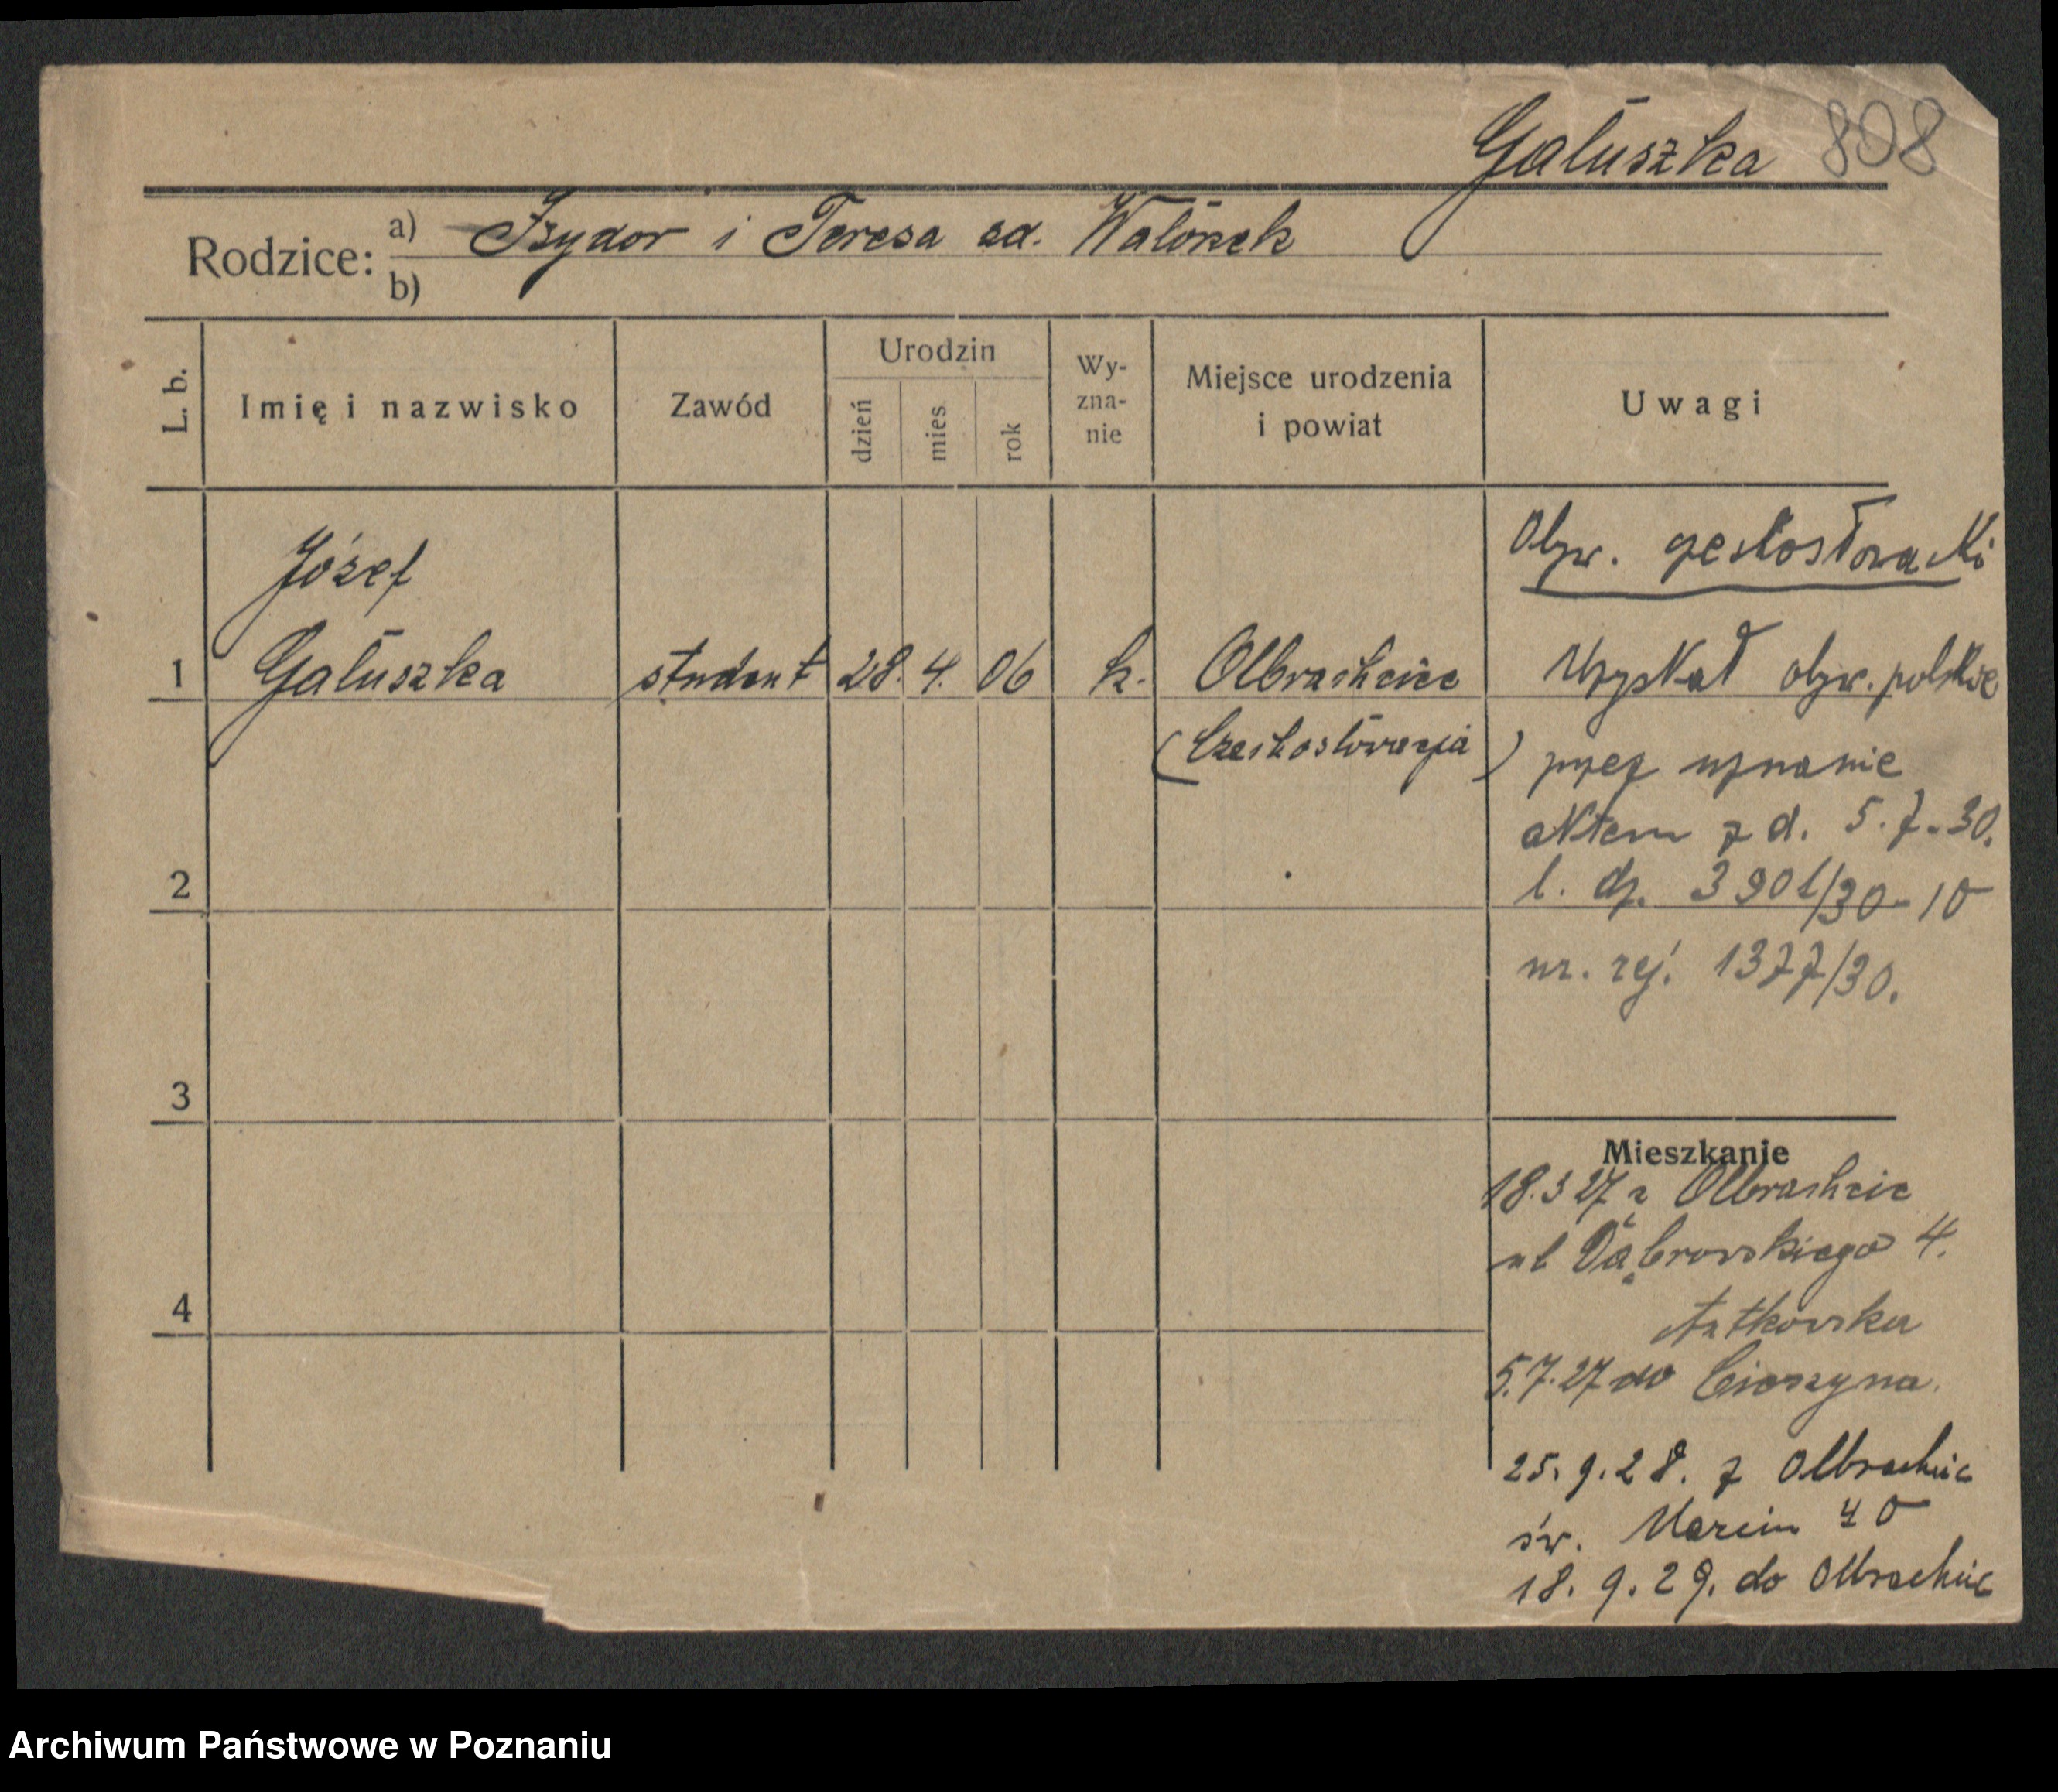 Gałuszka 808
Rodzice: a) Izydor i Teresa zd. Wałózek
b)
L. b. Imię i nazwisko Zawód Urodzin dzień mies. rok Wyzna-nie Miejsce urodzenia i powiat Uwagi
Józef
Obyw. czeskosłowacki
1 Gałuszka student 28. 4. 06 k. Olbrachcice
(Czeskosłowacja)
Uzyskał obyw. polskie
przez uznanie
aktem z d. 5.7.30.
2
l. dz. 3901/30-10
nr. rej. 1377/30.
3
Mieszkanie
18.3 27 z Olbrachcic
ul Dąbrowskiego 4.
4
5.7.27 do Cieszyna.
25.9.28. z Olbrachcic
św. Marcin 40
18.9.29. do Olbrachcic
Archiwum Państwowe w Poznaniu